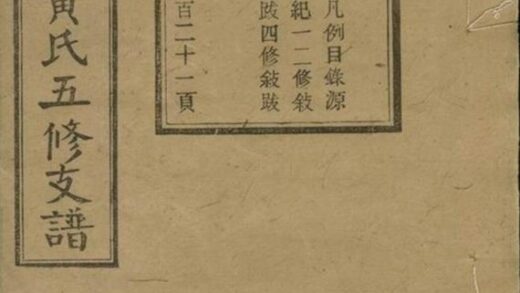 黃氏五修支譜
凡例目錄源
紀一二修敍
跋四修敍跋
百二十一頁